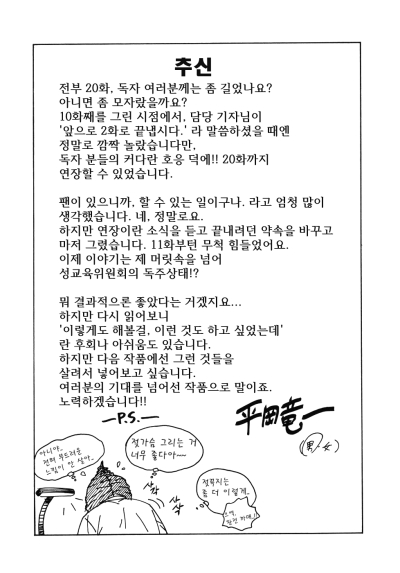 추신
전부 20화, 독자 여러분께는 좀 길었나요?
아니면 좀 모자랐을까요?
10화째를 그린 시점에서, 담당 기자님이
'앞으로 2화로 끝냅시다.' 라 말씀하셨을 때엔
정말로 깜짝 놀랐습니다만,
독자 분들의 커다란 호응 덕에!! 20화까지
연장할 수 있었습니다.
팬이 있으니까, 할 수 있는 일이구나. 라고 엄청 많이
생각했습니다. 네, 정말로요.
하지만 연장이란 소식을 듣고 끝내려던 약속을 바꾸고
마저 그렸습니다. 11화부턴 무척 힘들었어요.
이제 이야기는 제 머릿속을 넘어
성교육위원회의 독주상태!?
뭐 결과적으론 좋았다는 거겠지요...
하지만 다시 읽어보니
'이렇게도 해볼걸, 이런 것도 하고 싶었는데'
란 후회나 아쉬움도 있습니다.
하지만 다음 작품에선 그런 것들을
살려서 넣어보고 싶습니다.
여러분의 기대를 넘어선 작품으로 말이죠.
노력하겠습니다!!
—P.S.—
平岡竜一
(男/女)
아니야..
좀더 부드러운
느낌이 안 살아..
젖가슴 그리는 거
너무 좋다아~~
사각
사삭
젖꼭지는
좀 더 이렇게..